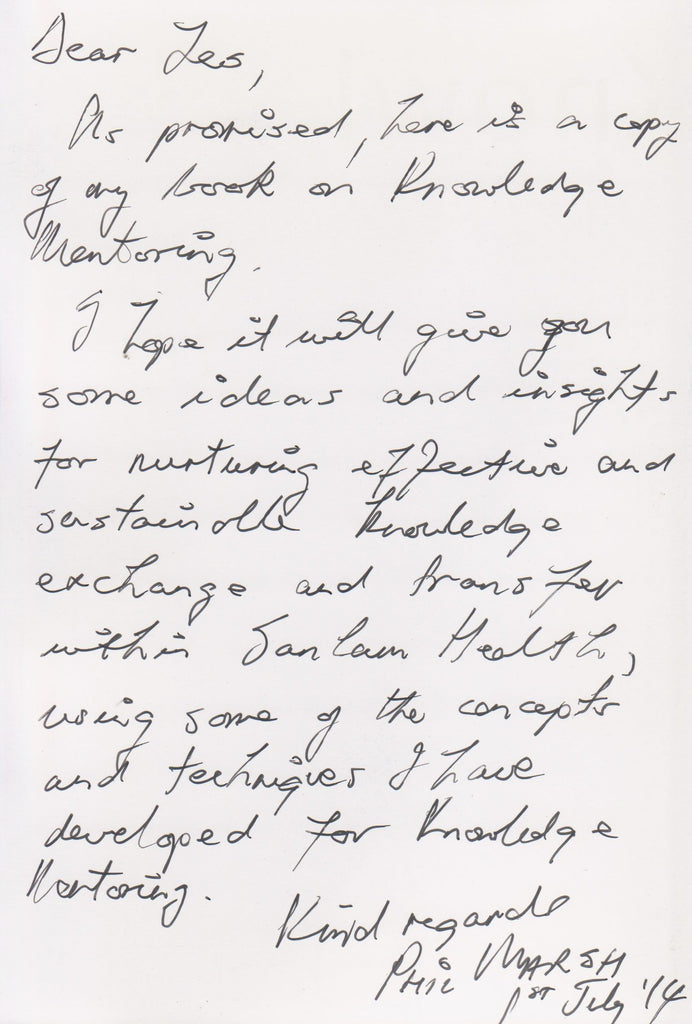 Dear Les,
As promised, here is a copy
of my book on Knowledge
Mentoring.
I hope it will give you
some ideas and insights
for nurturing effective and
sustainable knowledge
exchange and transfer
within Sanlam Health,
using some of the concepts
and techniques I have
developed for Knowledge
Mentoring.
Kind regards
Phil MARSH
1ST July '14